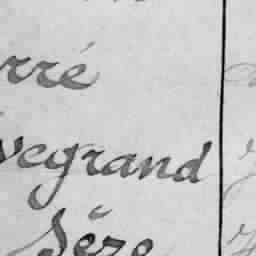 rré
vegrand
Séze